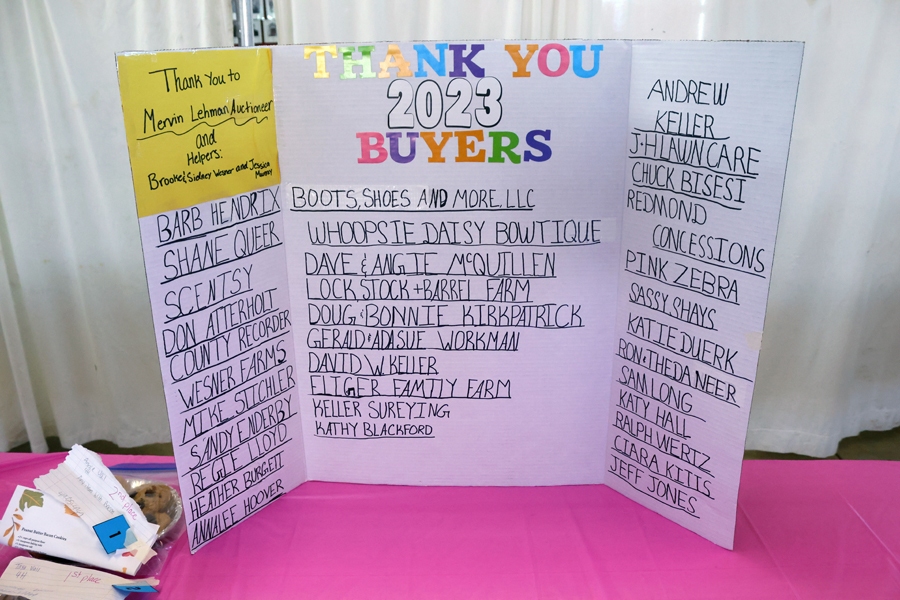 Thank You to
Mervin Lehman Auctioneer
and
Helpers:
Brooke, Sidney Wesner and Jessica
BARB HENDRIX
SHANE QUEER
SCENTSY
DON ATTERHOLT
COUNTY RECORDER
WESNER FARMS
MIKE STICHLER
SANDY ENDERBY
REGGIE LLOYD
HEATHER BURGETT
ANNALEE HOOVER
THANK YOU
2023
BUYERS
BOOTS, SHOES AND MORE, LLC
WHOOPSIE DAISY BOWTIQUE
DAVE & ANGIE McQUILLEN
LOCK STOCK + BARREL FARM
DOUG & BONNIE KIRKPATRICK
GERALD & ADASUE WORKMAN
DAVID W. KELLER
FLIGER FAMILY FARM
KELLER SUREYING
KATHY BLACKFORD
ANDREW
KELLER
J+H LAWN CARE
CHUCK BISESI
REDMOND
CONCESSIONS
PINK ZEBRA
SASSY SHAYS
KATIE DUERK
RON & THEDA NEER
SAM LONG
KATY HALL
RALPH WERTZ
CIARA KITTS
JEFF JONES
2nd place
1
Peanut Butter Bacon Cookies
1st place